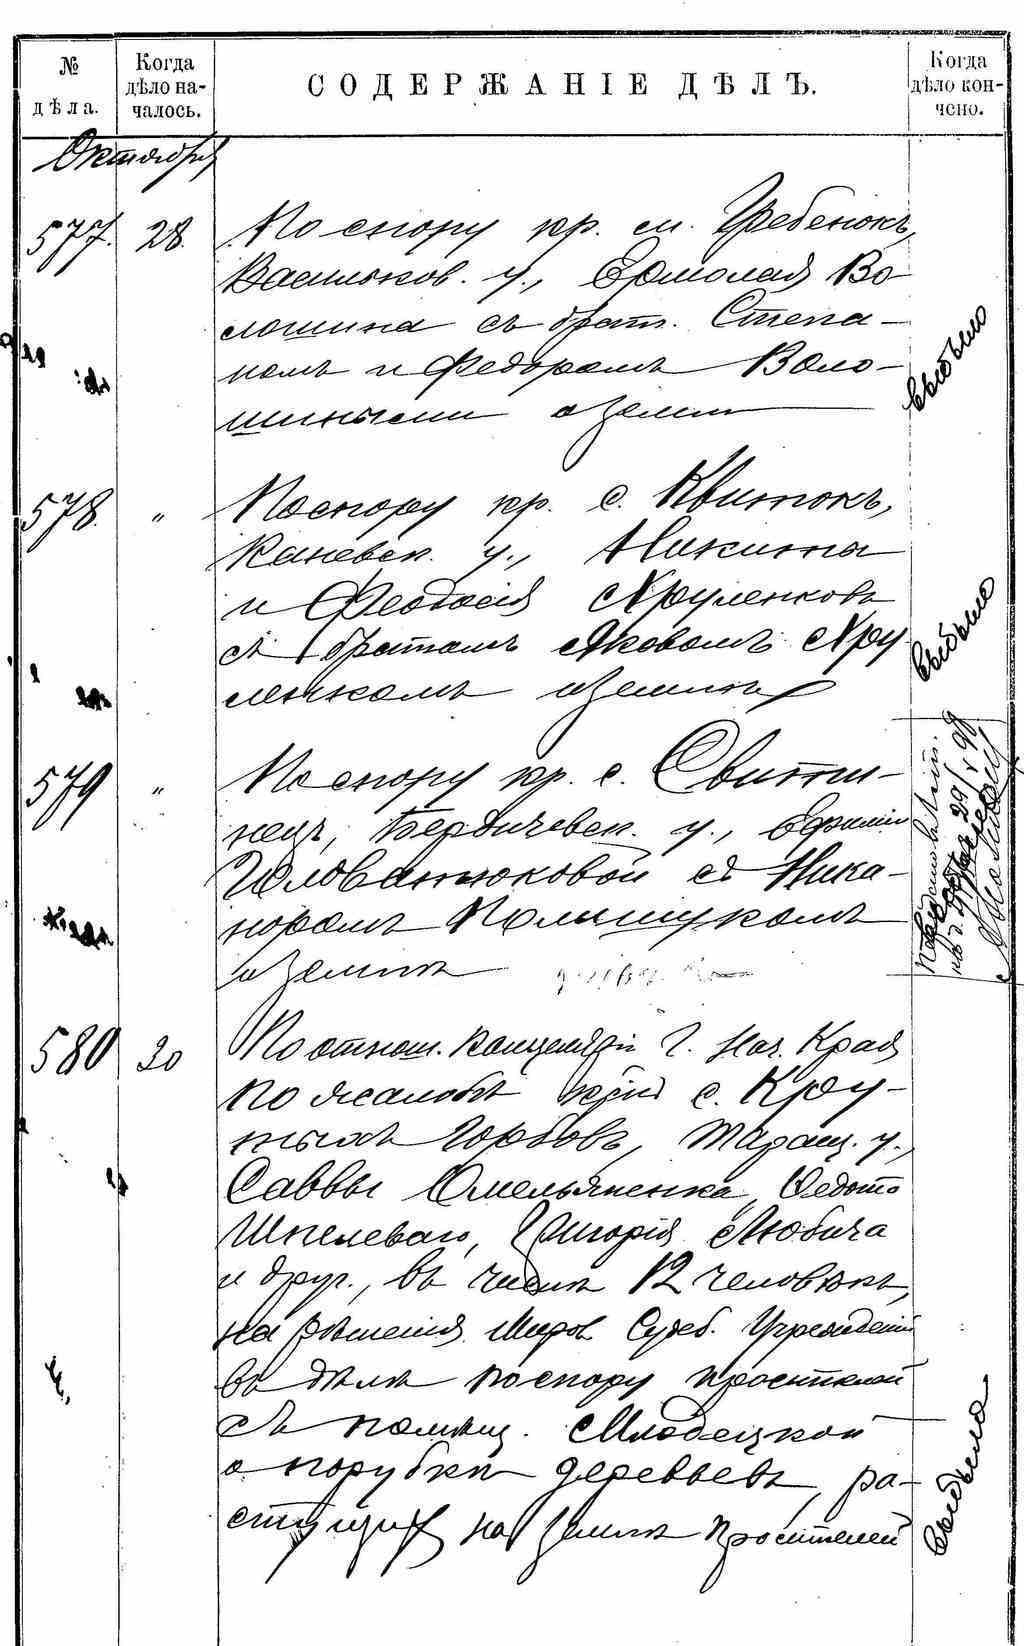 № дѣла.
Когда дѣло на-
чалось.
СОДЕРЖАНІЕ ДѢЛЪ.
Когда дѣло кон-
чено.
Октября
577. 28. По спору кр. м. Гребенокъ,
Васильков. у., Ермолая Во
лошина съ брат. Степа-
номъ и Федоромъ Воло-
шиными о земли
выбыло
578. „ По спору кр. с. Квитокъ,
Каневск. у., Никита
и Феодосія Хруленковъ
съ братомъ Яковомъ Хру
ленкомъ о земли
выбыло
579 „ По спору кр. с. Свити-
нецъ, Бердичевск. у., Ефиміи
съ Ника-
норомъ Полищукомъ
о земли
580 30 По отнош. Канцеляріи Г. Нач. Края
по жалобѣ кр. с. Кру-
тыхъ Горбовъ, Таращ. у.,
Саввы Омельяненка, Федота
Шпелеваго, Григорія Любича
и друг., въ числѣ 12 человѣкъ,
на рѣшенія Миров. Судеб. Учрежденій
въ дѣлѣ по спору просителей
съ помѣщ. Млодецкой
о порубкѣ деревьевъ, ра-
стущихъ на землѣ просителей
выбыло